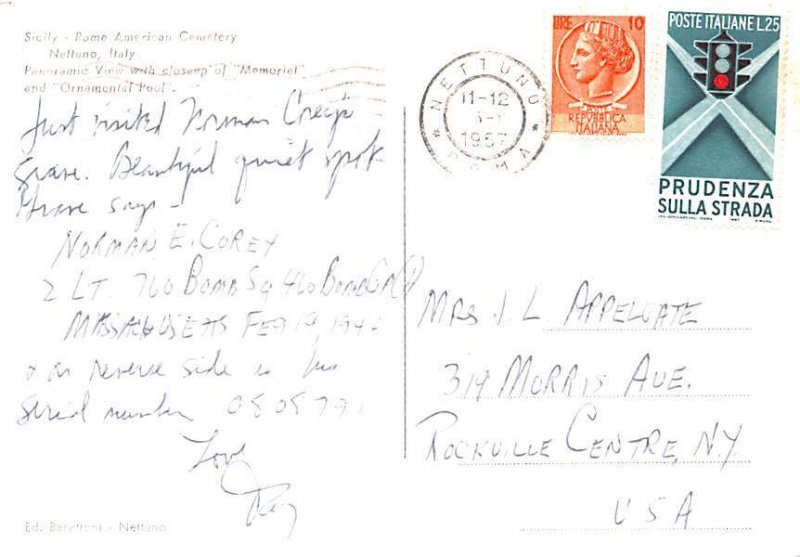 Sicily - Rome American Cemetery
Nettuno, Italy
Panoramic View with closeup of "Memorial"
and "Ornamental Pool".
Just visited Norman Corey's
grave. Beautiful quiet spot.
Grave says -
NORMAN E. COREY
2 LT. 760 BOMB SQ 460 BOMB GP (H)
MASSACHUSETTS FEB 19, 194
& on reverse side is his
serial number 080579
Love
Ray
Ed. Barettoni - Nettuno
NETTUNO
11-12
1957
ROMA
LIRE 10
REPVBBLICA
ITALIANA
POSTE ITALIANE L.25
PRUDENZA
SULLA STRADA
MRS J. L. APPELGATE
314 MORRIS AVE.
ROCKVILLE CENTRE, N.Y.
USA